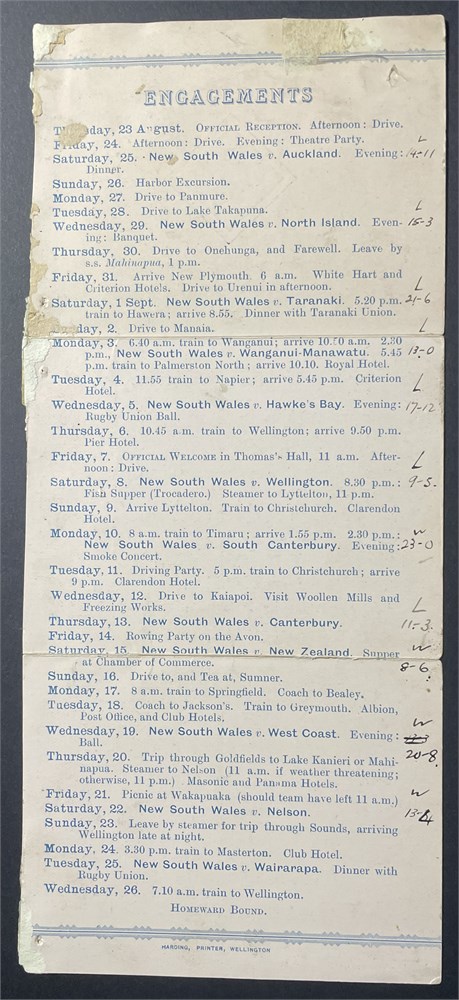 ENGAGEMENTS
day, 23 August. OFFICIAL RECEPTION. Afternoon: Drive.
Friday, 24. Afternoon: Drive. Evening: Theatre Party. L
Saturday, 25. New South Wales v. Auckland. Evening: 14-11
Dinner.
Sunday, 26. Harbor Excursion.
Monday, 27. Drive to Panmure.
Tuesday, 28. Drive to Lake Takapuna. L
Wednesday, 29. New South Wales v. North Island. Even- 15-3
ing: Banquet.
Thursday, 30. Drive to Onehunga, and Farewell. Leave by
s.s. Mahinapua, 1 p.m.
Friday, 31. Arrive New Plymouth 6 a.m. White Hart and
Criterion Hotels. Drive to Urenui in afternoon. L
Saturday, 1 Sept. New South Wales v. Taranaki. 5.20 p.m. 21-6
train to Hawera; arrive 8.55. Dinner with Taranaki Union.
Sunday, 2. Drive to Manaia. L
Monday, 3. 6.40 a.m. train to Wanganui; arrive 10.50 a.m. 2.30
p.m., New South Wales v. Wanganui-Manawatu. 5.45 13-0
p.m. train to Palmerston North; arrive 10.10. Royal Hotel.
Tuesday, 4. 11.55 train to Napier; arrive 5.45 p.m. Criterion L
Hotel.
Wednesday, 5. New South Wales v. Hawke's Bay. Evening: 17-12
Rugby Union Ball.
Thursday, 6. 10.45 a.m. train to Wellington; arrive 9.50 p.m.
Pier Hotel.
Friday, 7. OFFICIAL WELCOME in Thomas's Hall, 11 a.m. After- L
noon: Drive.
Saturday, 8. New South Wales v. Wellington. 8.30 p.m.: 9-5.
Fish Supper (Trocadero.) Steamer to Lyttelton, 11 p.m.
Sunday, 9. Arrive Lyttelton. Train to Christchurch. Clarendon
Hotel.
Monday, 10. 8 a.m. train to Timaru; arrive 1.55 p.m. 2.30 p.m.: W
New South Wales v. South Canterbury. Evening: 23-0
Smoke Concert.
Tuesday, 11. Driving Party. 5 p.m. train to Christchurch; arrive
9 p.m. Clarendon Hotel.
Wednesday, 12. Drive to Kaiapoi. Visit Woollen Mills and
Freezing Works. L
Thursday, 13. New South Wales v. Canterbury. 11-3.
Friday, 14. Rowing Party on the Avon. W
Saturday, 15. New South Wales v. New Zealand. Supper
at Chamber of Commerce. 8-6.
Sunday, 16. Drive to, and Tea at, Sumner.
Monday, 17. 8 a.m. train to Springfield. Coach to Bealey.
Tuesday, 18. Coach to Jackson's. Train to Greymouth. Albion,
Post Office, and Club Hotels. W
Wednesday, 19. New South Wales v. West Coast. Evening:
Ball. 20-8.
Thursday, 20. Trip through Goldfields to Lake Kanieri or Mahi-
napua. Steamer to Nelson (11 a.m. if weather threatening;
otherwise, 11 p.m.) Masonic and Panama Hotels.
Friday, 21. Picnic at Wakapuaka (should team have left 11 a.m.) W
Saturday, 22. New South Wales v. Nelson. 13-4
Sunday, 23. Leave by steamer for trip through Sounds, arriving
Wellington late at night.
Monday, 24. 3.30 p.m. train to Masterton. Club Hotel.
Tuesday, 25. New South Wales v. Wairarapa. Dinner with
Rugby Union.
Wednesday, 26. 7.10 a.m. train to Wellington.
HOMEWARD BOUND.
HARDING, PRINTER, WELLINGTON